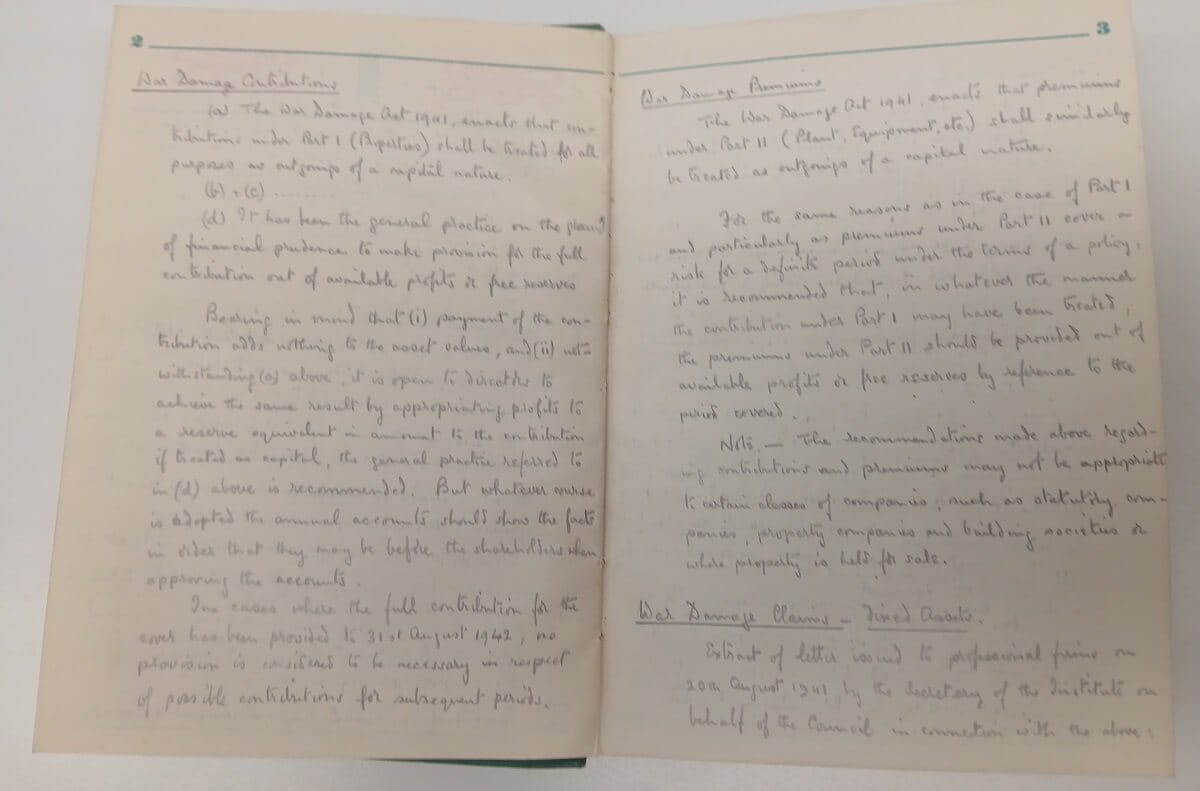 2
War Damage Contributions
(a) The War Damage Act 1941, enacts that con-
tributions under Part I (Properties) shall be treated for all
purposes as outgoings of a capital nature.
(b) + (c) ..........
(d) It has been the general practice on the ground
of financial prudence to make provision for the full
contribution out of available profits or free reserves
Bearing in mind that (i) payment of the con-
tribution adds nothing to the asset values, and (ii) not-
withstanding (a) above, it is open to directors to
achieve the same result by appropriating profits to
a reserve equivalent in amount to the contribution
if treated as capital, the general practice referred to
in (d) above is recommended. But whatever course
is adopted the annual accounts should show the facts
in order that they may be before the shareholders when
approving the accounts.
In cases where the full contribution for the
cover has been provided to 31st August 1942, no
provision is considered to be necessary in respect
of possible contributions for subsequent periods.
3
War Damage Premiums
The War Damage Act 1941, enacts that premiums
under Part II (Plant, Equipment, etc.) shall similarly
be treated as outgoings of a capital nature.
For the same reasons as in the case of Part I
and particularly as premiums under Part II cover a
risk for a definite period under the terms of a policy,
it is recommended that, in whatever the manner
the contribution under Part I may have been treated,
the premiums under Part II should be provided out of
available profits or free reserves by reference to the
period covered.
Note. — The recommendations made above regard-
ing contributions and premiums may not be appropriate
to certain classes of companies, such as statutory com-
panies, property companies and building societies or
where property is held for sale.
War Damage Claims – Fixed Assets.
Extract of letter issued to professional firms on
20th August 1941, by the Secretary of the Institute on
behalf of the Council in connection with the above: